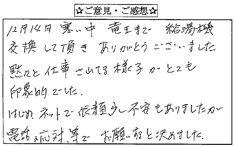 ☆ご意見・ご感想☆
12月14日 寒い中 竜王まで 給湯機
交換して頂き ありがとうございました
黙々と仕事されてる様子がとても
印象的でした。
はじめネットで依頼少し不安もありましたが
電話の応対等で お願いなと決めました。